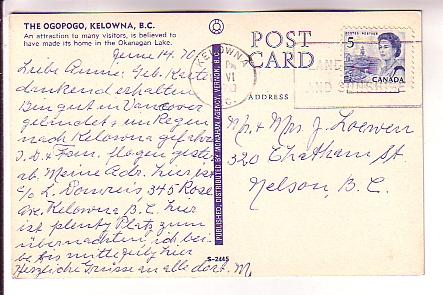 THE OGOPOGO, KELOWNA, B.C.
An attraction to many visitors, is believed to
have made its home in the Okanagan Lake.
June 14. 70
Liebe Geb. Karte
dankend erhalten
Bin gut in Vancouver
gelandet u im Regen
nach Kelowna
J. D. + Fam. flogen
ab. Meine Adr. hier, ist
c/o L. 345 Rose
Ave. Kelowna B. C. hier
ist plenty Platz zum
übernachten, ich
hier
Herzliche Grüsse an alle dort. M.
PUBLISHED, DISTRIBUTED BY MONAHAN AGENCY, VERNON, B.C.
S-2445
POST
CARD
ADDRESS
KELOWNA
PM
VI
AND SUNSHINE
5
POSTES POSTAGE
CANADA
Mr. + Mrs. J. Loewen
320 Chatham St.
Nelson, B. C.